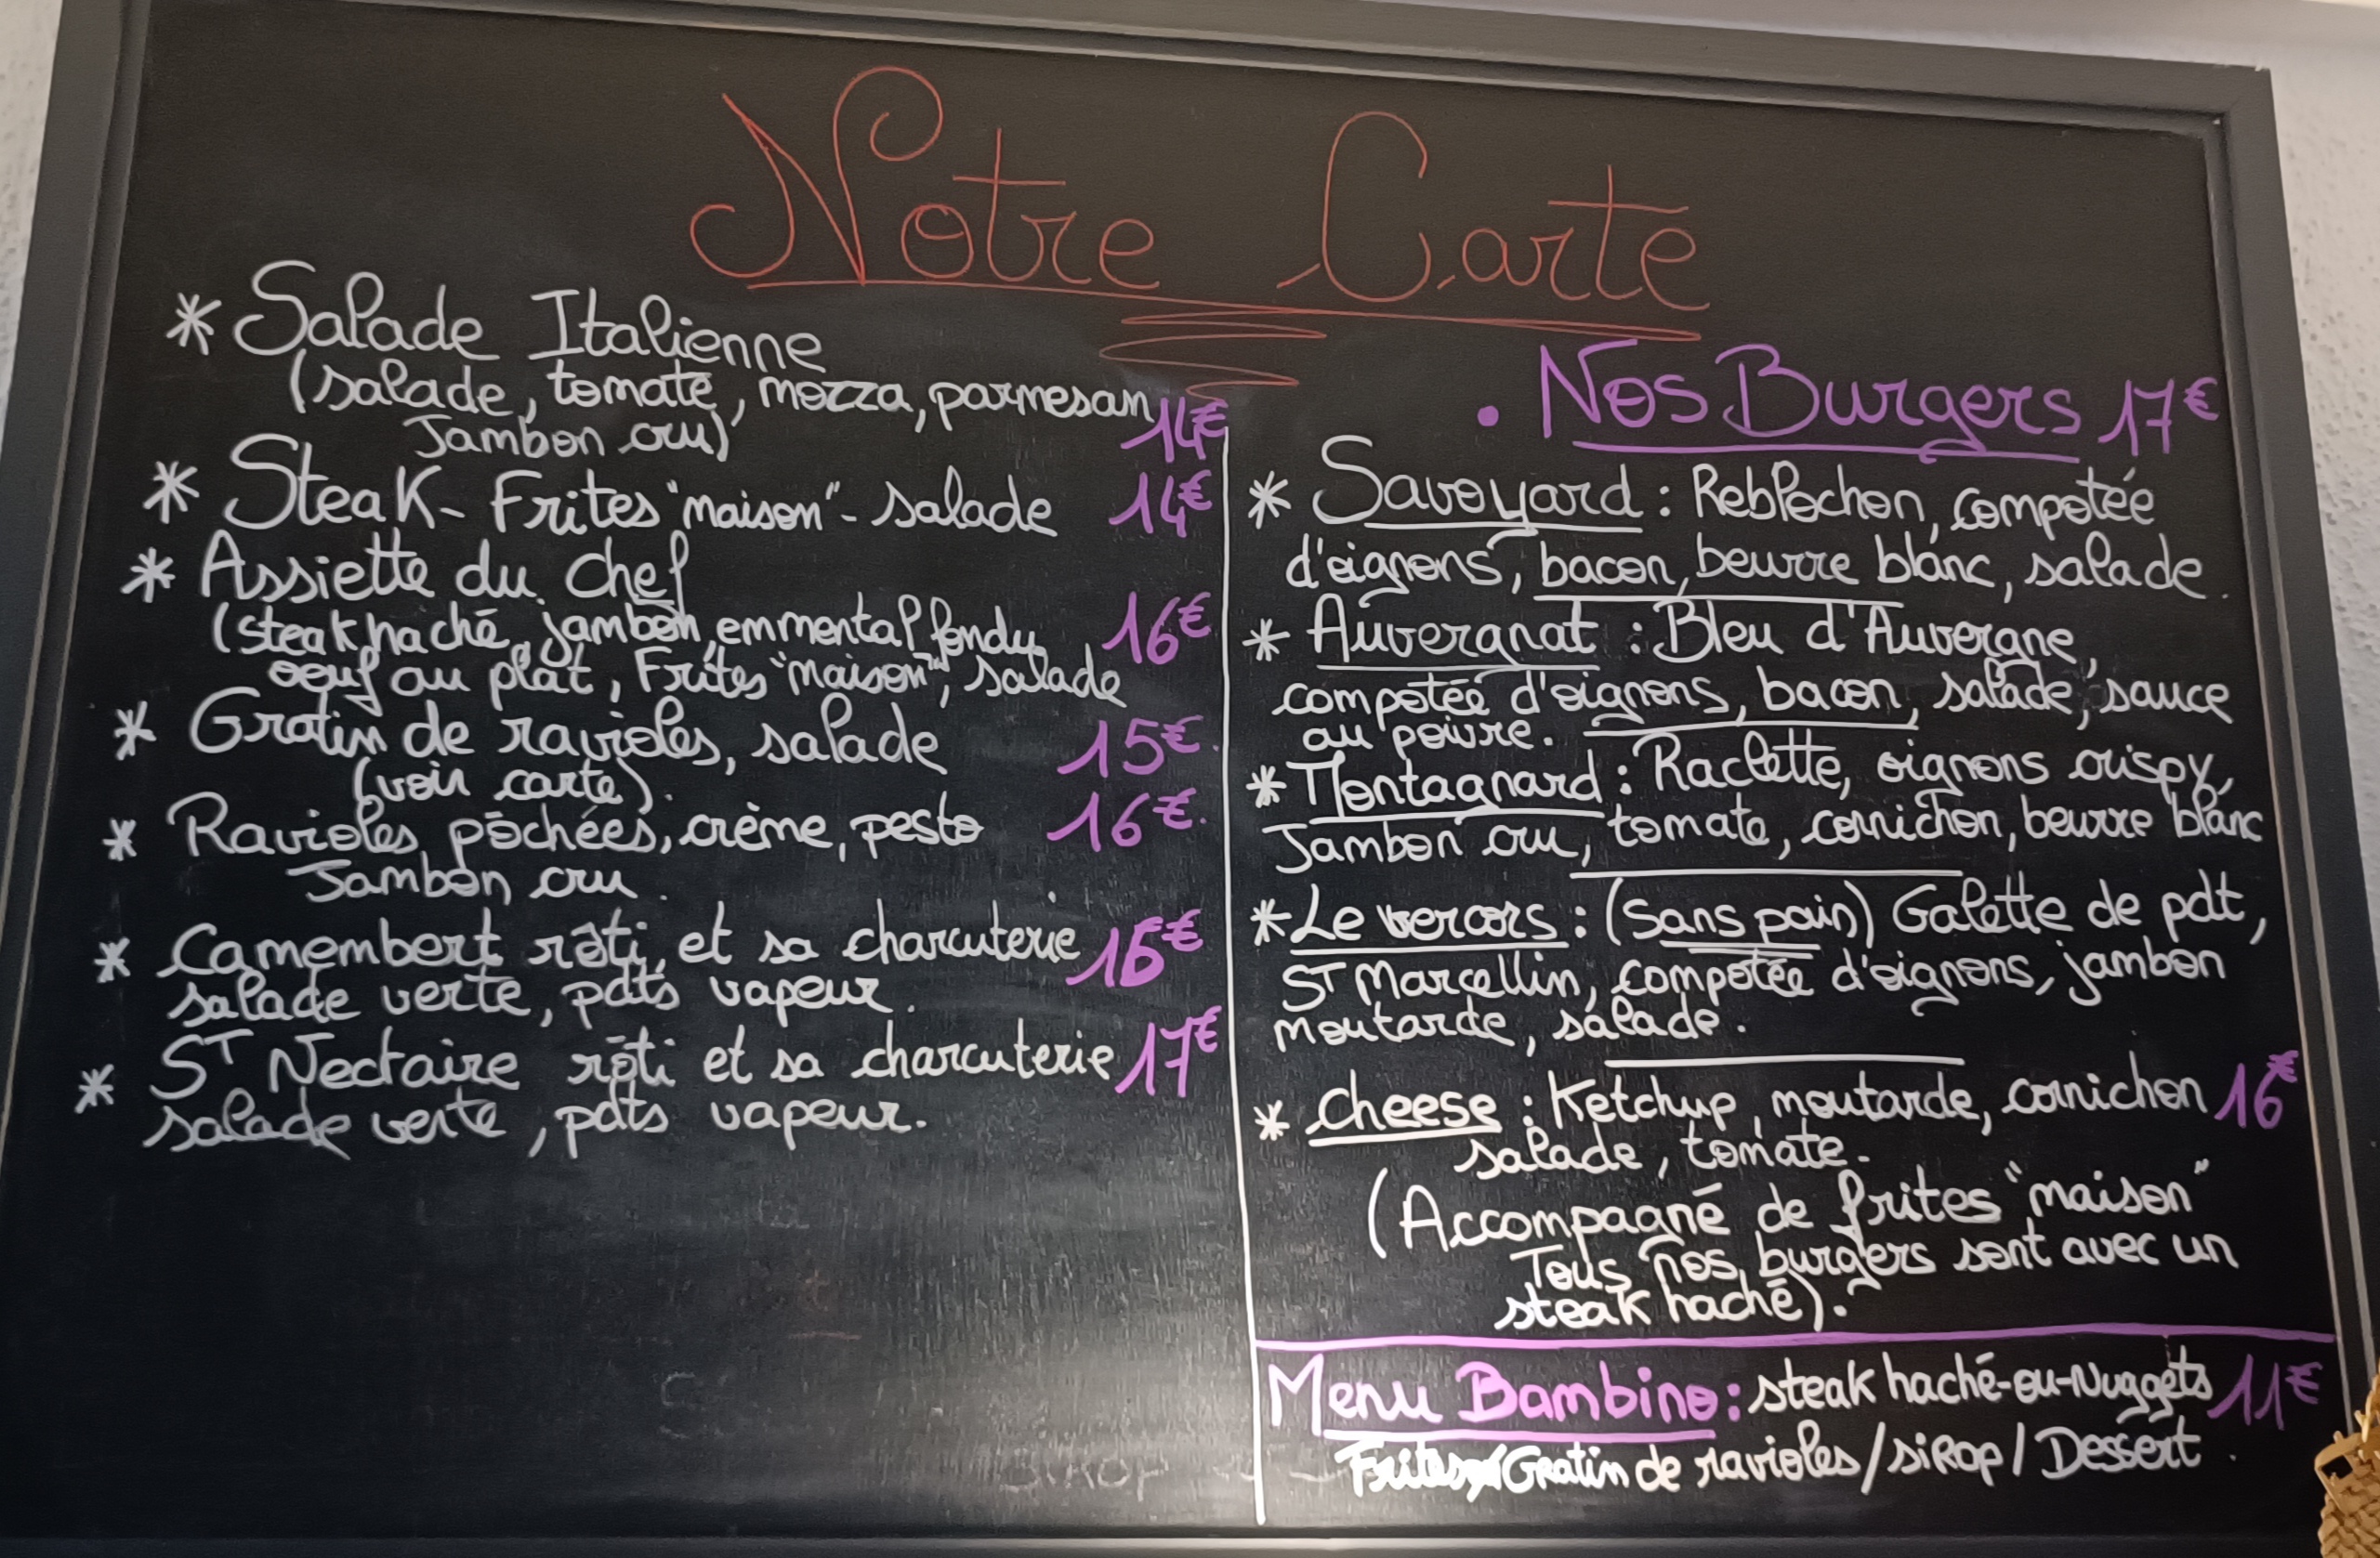 Notre Carte
* Salade Italienne
(salade, tomate, mozza, parmesan
Jambon cru) 14€
* Steak - Frites "maison" - salade 14€
* Assiette du chef
(steak haché, jambon, emmental fondu, 16€
oeuf au plat, Frites "maison", salade
* Gratin de ravioles, salade 15€.
(voir carte).
* Ravioles pôchées, crème, pesto 16€.
Jambon cru.
* Camembert rôti, et sa charcuterie €
salade verte, pdts vapeur.
* ST Nectaire rôti et sa charcuterie 17€
salade verte, pdts vapeur.
. Nos Burgers 17€
* Savoyard : Reblochon, compotée
d'oignons, bacon, beurre blanc, salade.
* Auvergnat : Bleu d'Auvergne,
compotée d'oignons, bacon, salade, sauce
au poivre.
* Montagnard : Raclette, oignons crispy,
Jambon cru, tomate, cornichon, beurre blanc
* Le vercors : (Sans pain) Galette de pdt,
ST Marcellin, compotée d'oignons, jambon
moutarde, salade.
* Cheese : Ketchup, moutarde, cornichon 16€
salade, tomate.
(Accompagné de frites "maison"
Tous nos burgers sont avec un
steak haché).
Menu Bambino : steak haché-ou-Nuggets 11€
Frites/Gratin de ravioles/siROP/Dessert.